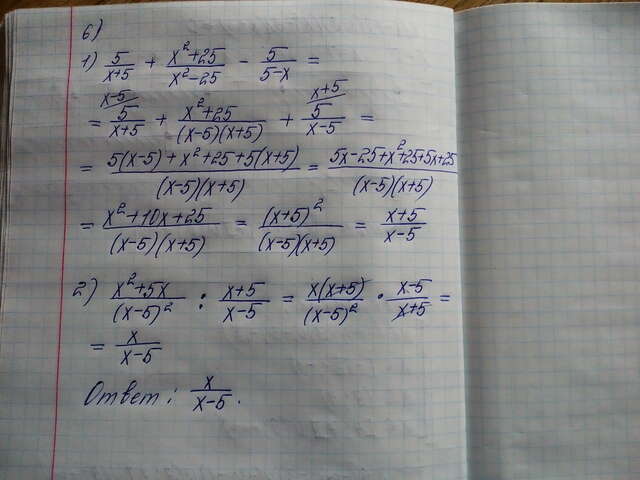 б)
1) 5/(x+5) + (x²+25)/(x²-25) - 5/(5-x) =
= (x-5/ 5)/(x+5) + (x²+25)/((x-5)(x+5)) + (x+5/ 5)/(x-5) =
= (5(x-5)+x²+25+5(x+5))/((x-5)(x+5)) = (5x-25+x²+25+5x+25)/((x-5)(x+5))
= (x²+10x+25)/((x-5)(x+5)) = (x+5)²/((x-5)(x+5)) = (x+5)/(x-5)
2) (x²+5x)/(x-5)² : (x+5)/(x-5) = x(x+5)/(x-5)² · (x-5)/(x+5) =
= x/(x-5)
Ответ: x/(x-5).